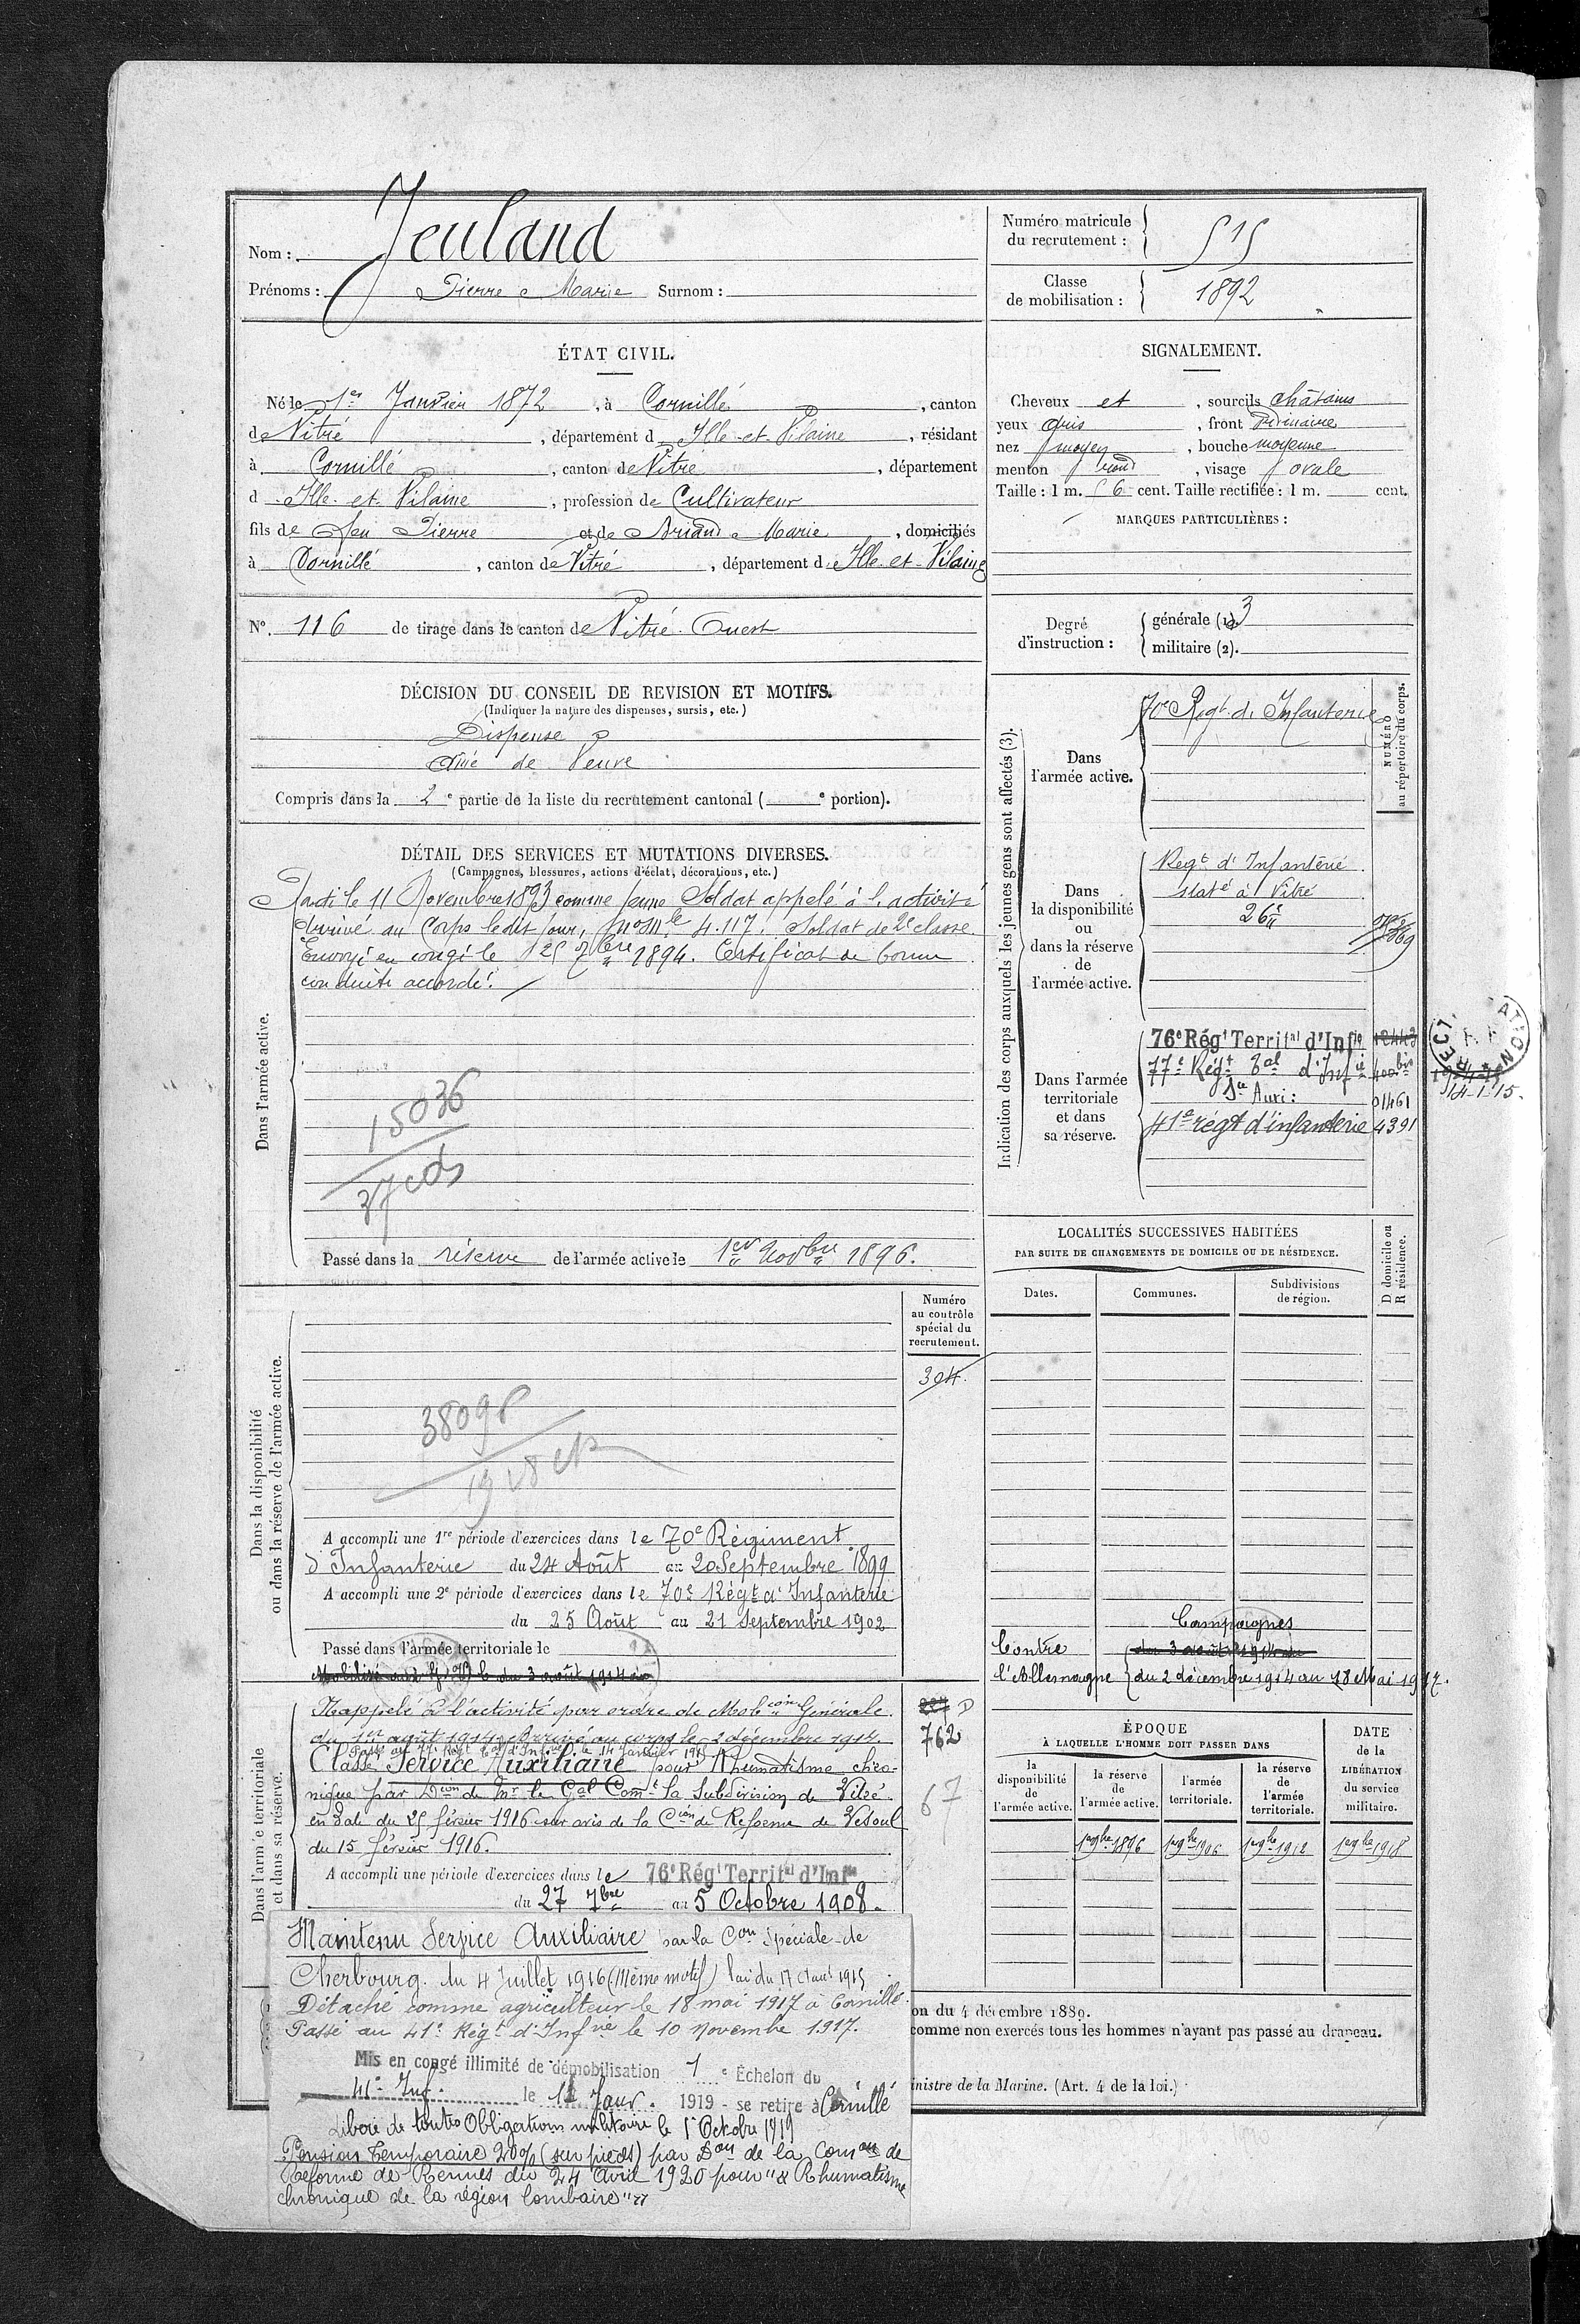 Nom : Jeuland
Prénoms : Pierre Marie Surnom :
Numéro matricule
du recrutement : 515
Classe
de mobilisation : 1892
ÉTAT CIVIL.
Né le 1er Janvier 1872, à Cornillé, canton
de Vitré, département d Ille-et-Vilaine, résidant
à Cornillé, canton de Vitré, département
d Ille et Vilaine, profession de Cultivateur
fils de feu Pierre et de Briand Marie, domiciliés
à Cornillé, canton de Vitré, département d Ille-et-Vilaine
No. 116 de tirage dans le canton de Vitré-Ouest
SIGNALEMENT.
Cheveux et, sourcils châtains
yeux gris, front ordinaire
nez moyen, bouche moyenne
menton rond, visage ovale
Taille : 1 m. 56 cent. Taille rectifiée : 1 m. cent.
MARQUES PARTICULIÈRES :
Degré
d'instruction :
générale (1). 3
militaire (2).
DÉCISION DU CONSEIL DE REVISION ET MOTIFS.
(Indiquer la nature des dispenses, sursis, etc.)
Dispensé
Aîné de Veuve
Compris dans la 2e partie de la liste du recrutement cantonal ( e portion).
DÉTAIL DES SERVICES ET MUTATIONS DIVERSES.
(Campagnes, blessures, actions d'éclat, décorations, etc.)
Dans l'armée active.
Parti le 11 Novembre 1893 comme jeune Soldat appelé à l'activité
Arrivé au Corps ledit jour, no mle 4.117. Soldat de 2e classe
Envoyé en congé le 25 7bre 1894. Certificat de bonne
conduite accordé.
15036
37 cds
Passé dans la réserve de l'armée active le 1er Novbre 1896.
Indication des corps auxquels les jeunes gens sont affectés (3).
NUMÉRO
au répertoire du corps.
Dans
l'armée active.
70e Régt d'Infanterie
Dans
la disponibilité
ou
dans la réserve
de
l'armée active.
Regt d'Infanterie
staté à Vitré
Dans l'armée
territoriale
et dans
sa réserve.
76e Régt Territal d'Infie
77e Régt Tal d'Infie 400 bis
Son Auxi : 01461
41e régt d'infanterie 4391
14-1-15.
Numéro
au contrôle
spécial du
recrutement.
304
Dans la disponibilité
ou dans la réserve de l'armée active.
38098
A accompli une 1re période d'exercices dans le 70e Régiment
d'Infanterie du 24 Août au 20 Septembre 1899
A accompli une 2e période d'exercices dans le 70e Régt d'Infanterie
du 25 Août au 21 Septembre 1902
Passé dans l'armée territoriale le
LOCALITÉS SUCCESSIVES HABITÉES
PAR SUITE DE CHANGEMENTS DE DOMICILE OU DE RÉSIDENCE.
Dates.
Communes.
Subdivisions
de région.
D domicile ou
R résidence.
Campagnes
Contre du 3 août 1914 au
l'Allemagne du 2 décembre 1914 au 18 Mai 1917.
Dans l'armée territoriale
et dans sa réserve.
Rappelé à l'activité par ordre de Mobcion Générale
du 1er août 1914. Arrivé au corps le 2 décembre 1914.
Passé au 77e Régt Tal d'Infie le 14 Janvier 1915
Classé Service Auxiliaire pour Rhumatisme chro-
nique par Dcion de Mr le Gal Comt la Subdivision de Vitré
en date du 25 février 1916 sur avis de la Cion de Réforme de Vesoul
du 15 février 1916.
762
67
A accompli une période d'exercices dans le 76e Régt Territal d'Infie
du 27 7bre au 5 Octobre 1908.
ÉPOQUE
À LAQUELLE L'HOMME DOIT PASSER DANS
DATE
de la
LIBÉRATION
du service
militaire.
la
disponibilité
de
l'armée active.
la réserve
de
l'armée active.
l'armée
territoriale.
la réserve
de
l'armée
territoriale.
1er 9bre 1896
1er 9bre 1906
1er 9bre 1912
1er 9bre 1918
Maintenu Service Auxiliaire par la Con Spéciale de
Cherbourg du 4 Juillet 1916 (Même motif) Loi du 17 Aout 1915
Détaché comme agriculteur le 18 mai 1917 à Cornillé.
Passé au 41e Régt d'Infrie le 10 Novembre 1917.
Mis en congé illimité de démobilisation 1 e Échelon du
41e Inf. le Janv. 1919 - se retire à Cornillé
Libéré de toutes Obligations militaire le 1r Octobre 1919
Pension temporaire 20% (sur pieds) par Don de la Comon de
Réforme de Rennes du 24 Avril 1920 pour "Rhumatisme
chronique de la région lombaire"
on du 4 décembre 1889.
comme non exercés tous les hommes n'ayant pas passé au drapeau.
inistre de la Marine. (Art. 4 de la loi.)